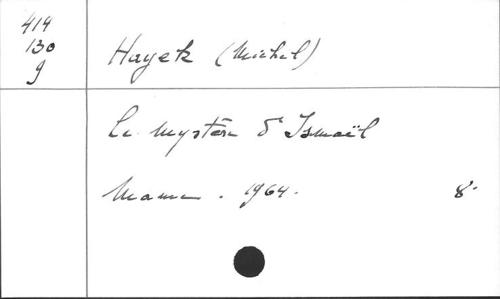 414
130
g
Hayek (Michel)
Le mystère d'Ismaël
Mame. 1964. 8°